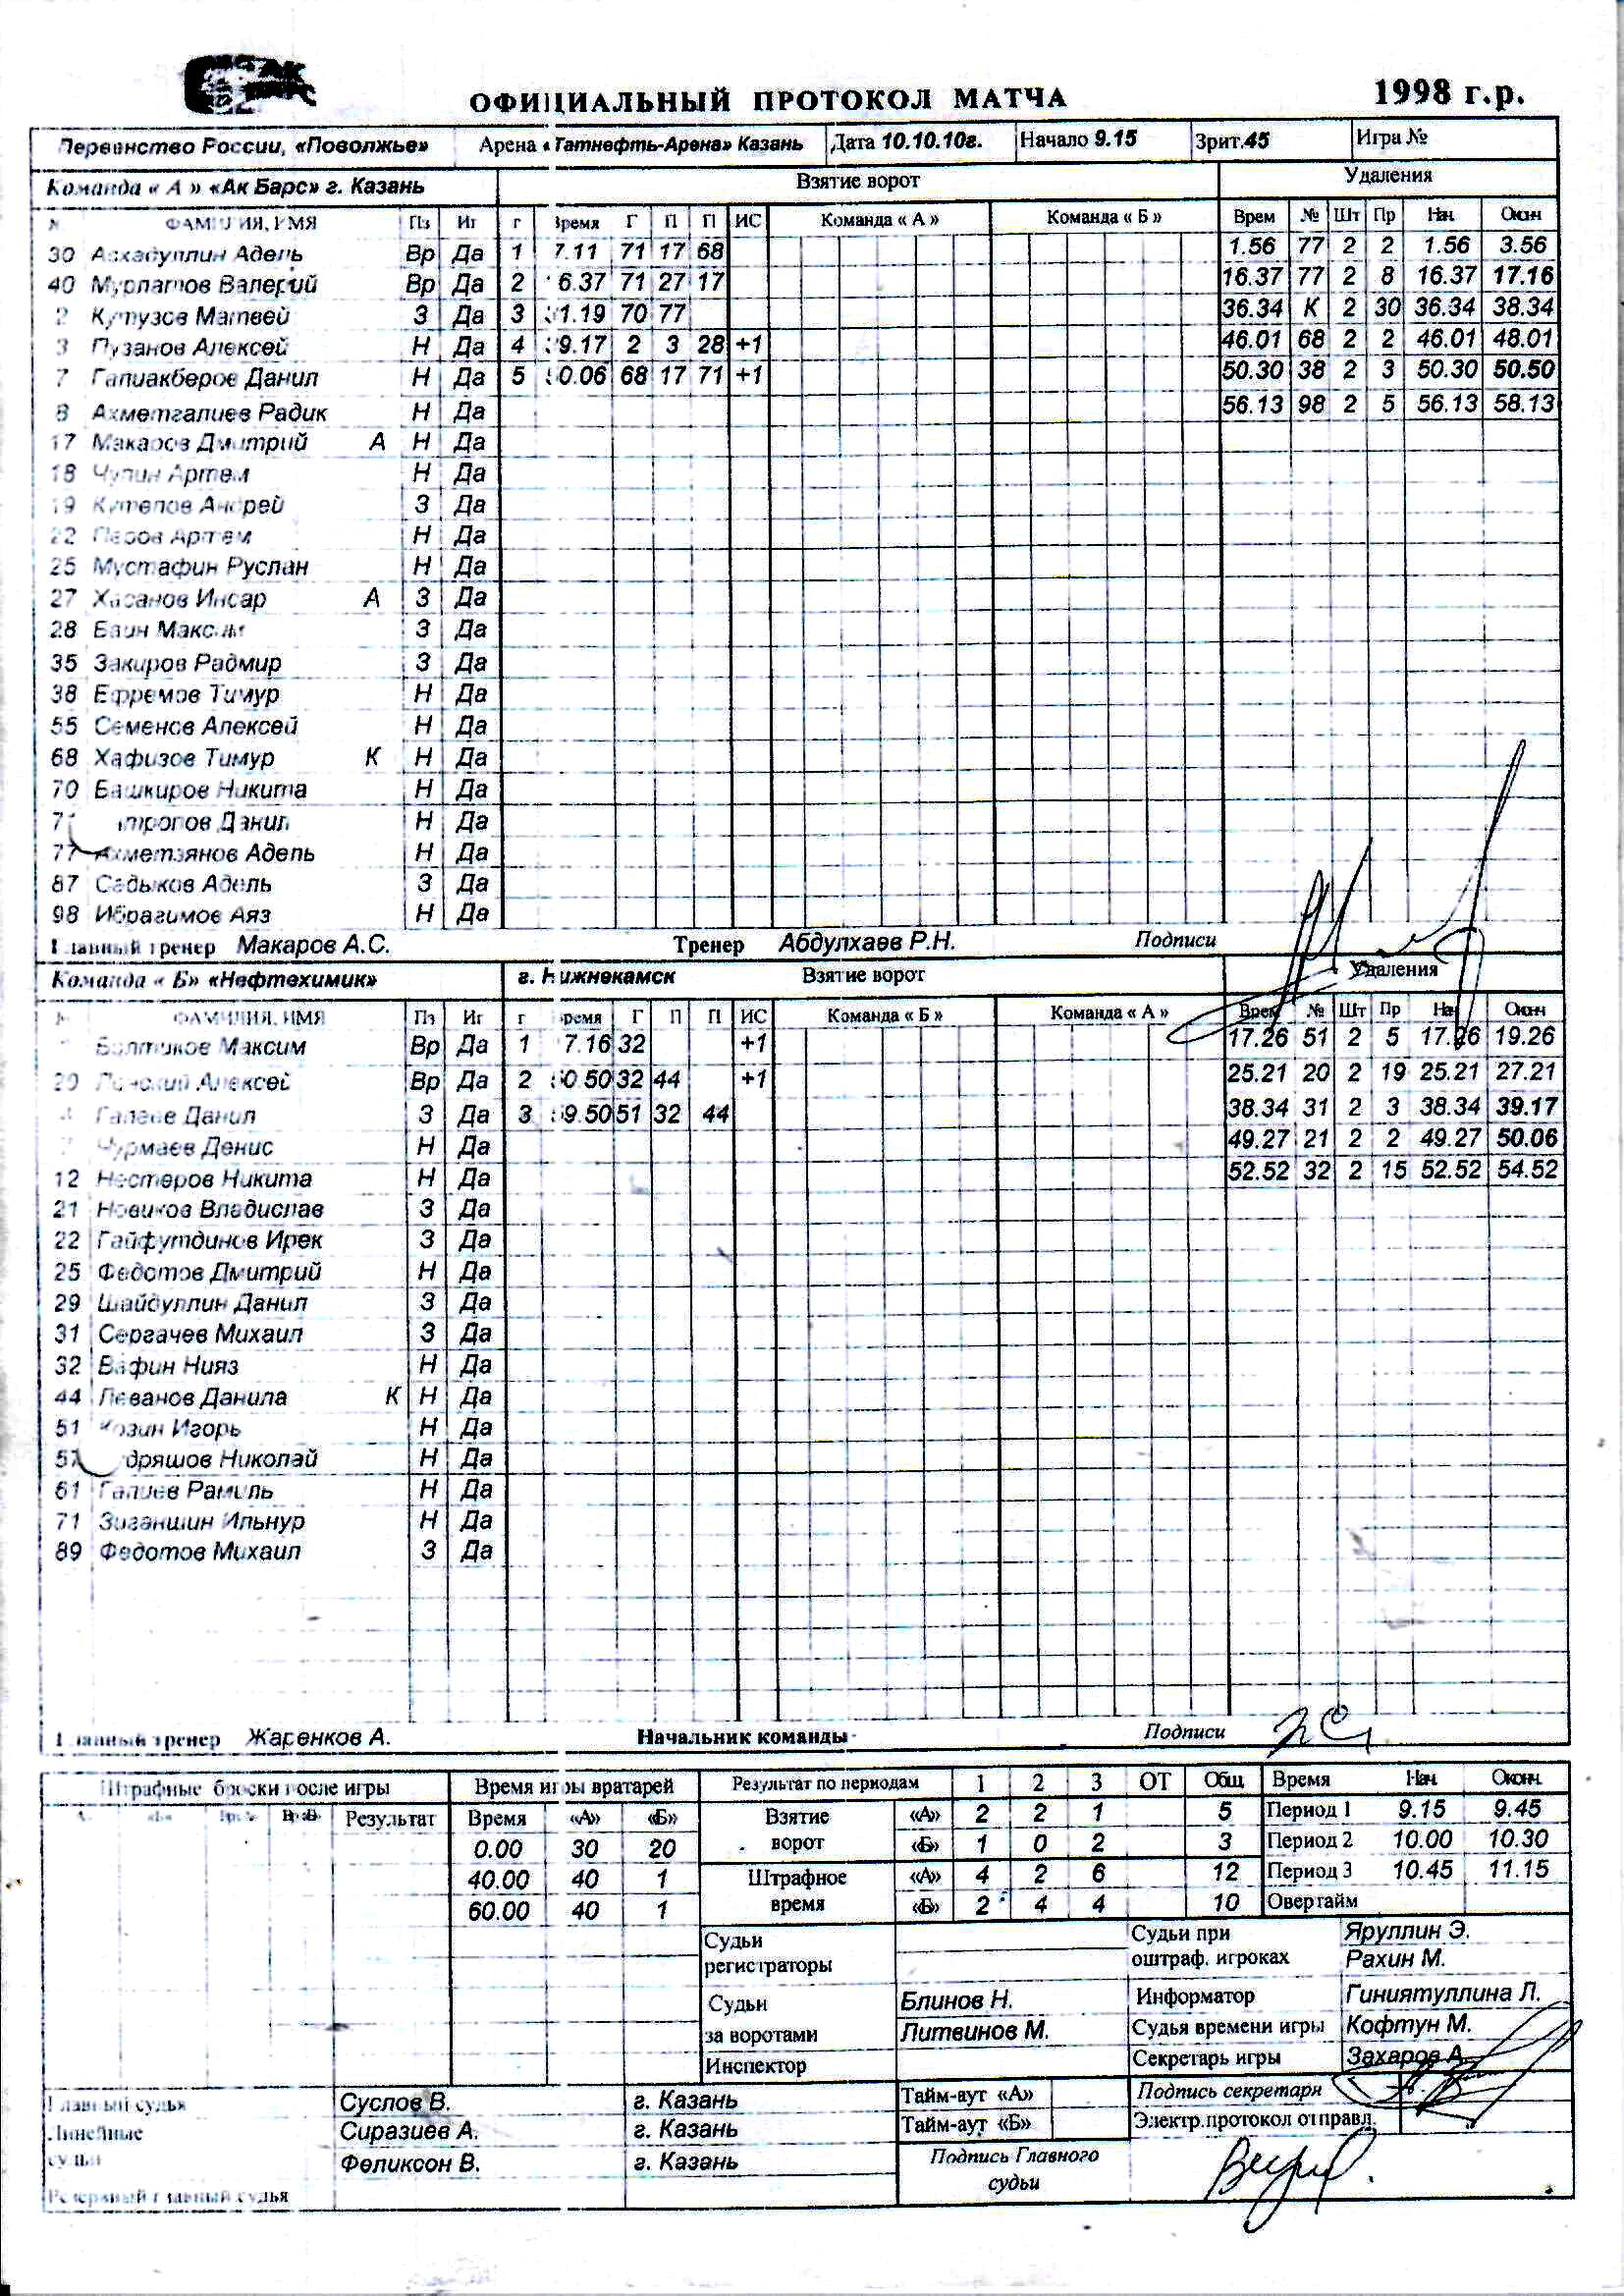 ОФИЦИАЛЬНЫЙ ПРОТОКОЛ МАТЧА 1998 г.р.
Первенство России, «Поволжье» Арена «Татнефть-Арена» Казань Дата 10.10.10г. Начало 9.15 Зрит.45 Игра №
Команда « А » «Ак Барс» г. Казань Взятие ворот Удаления
ФАМИЛИЯ, ИМЯ Пз Иг г Время Г П П ИС Команда « А » Команда « Б » Врем № Шт Пр Нач. Оконч
30 Асхадуллин Адель Вр Да 1 7.11 71 17 68 1.56 77 2 2 1.56 3.56
40 Вр Да 2 6.37 71 27 17 16.37 77 2 8 16.37 17.16
2 Кутузов Матвей З Да 3 1.19 70 77 36.34 К 2 30 36.34 38.34
3 Пузанов Алексей Н Да 4 9.17 2 3 28 +1 46.01 68 2 2 46.01 48.01
7 Галиакберов Данил Н Да 5 0.06 68 17 71 +1 50.30 38 2 3 50.30 50.50
8 Ахметгалиев Радик Н Да 56.13 98 2 5 56.13 58.13
17 Макаров Дмитрий А Н Да
18 Чупин Артем Н Да
19 Кутепов Андрей З Да
22 Артем Н Да
25 Мустафин Руслан Н Да
27 Хасанов Инсар А З Да
28 Баин Максим З Да
35 Закиров Радмир З Да
38 Ефремов Тимур Н Да
55 Семенов Алексей Н Да
68 Хафизов Тимур К Н Да
70 Башкиров Никита Н Да
Данил Н Да
77 Ахметзянов Адель Н Да
87 Садыков Адель З Да
98 Ибрагимов Аяз Н Да
Главный тренер Макаров А.С. Тренер Абдулхаев Р.Н. Подписи
Команда « Б» «Нефтехимик» г. Нижнекамск Взятие ворот Удаления
ФАМИЛИЯ, ИМЯ Пз Иг г Время Г П П ИС Команда « Б » Команда « А » Врем № Шт Пр Нач Оконч
Максим Вр Да 1 7.16 32 +1 17.26 51 2 5 17.26 19.26
20 Алексей Вр Да 2 0.50 32 44 +1 25.21 20 2 19 25.21 27.21
4 Данил З Да 3 9.50 51 32 44 38.34 31 2 3 38.34 39.17
Чурмаев Денис Н Да 49.27 21 2 2 49.27 50.06
12 Нестеров Никита Н Да 52.52 32 2 15 52.52 54.52
21 Новиков Владислав З Да
22 Гайфутдинов Ирек З Да
25 Федотов Дмитрий Н Да
29 Шайдуллин Данил З Да
31 Сергачев Михаил З Да
32 Вафин Нияз Н Да
44 Леванов Данила К Н Да
51 Козин Игорь Н Да
57 дряшов Николай Н Да
61 Галиев Рамиль Н Да
71 Зиганшин Ильнур Н Да
89 Федотов Михаил З Да
Главный тренер Жаренков А. Начальник команды Подписи
Штрафные броски после игры Время игры вратарей Результат по периодам 1 2 3 ОТ Общ Время Нач. Оконч.
Результат Время «А» «Б» Взятие «А» 2 2 1 5 Период 1 9.15 9.45
0.00 30 20 ворот «Б» 1 0 2 3 Период 2 10.00 10.30
40.00 40 1 Штрафное «А» 4 2 6 12 Период 3 10.45 11.15
60.00 40 1 время «Б» 2 4 4 10 Овертайм
Судьи Судьи при Яруллин Э.
регистраторы оштраф. игроках Рахин М.
Судьи Блинов Н. Информатор Гиниятуллина Л.
за воротами Литвинов М. Судья времени игры Кофтун М.
Инспектор Секретарь игры Захаров А.
Главный судья Суслов В. г. Казань Тайм-аут «А» Подпись секретаря
Линейные Сиразиев А. г. Казань Тайм-аут «Б» Электр.протокол отправл.
судьи Феликсон В. г. Казань Подпись Главного
Резервный главный судья судьи